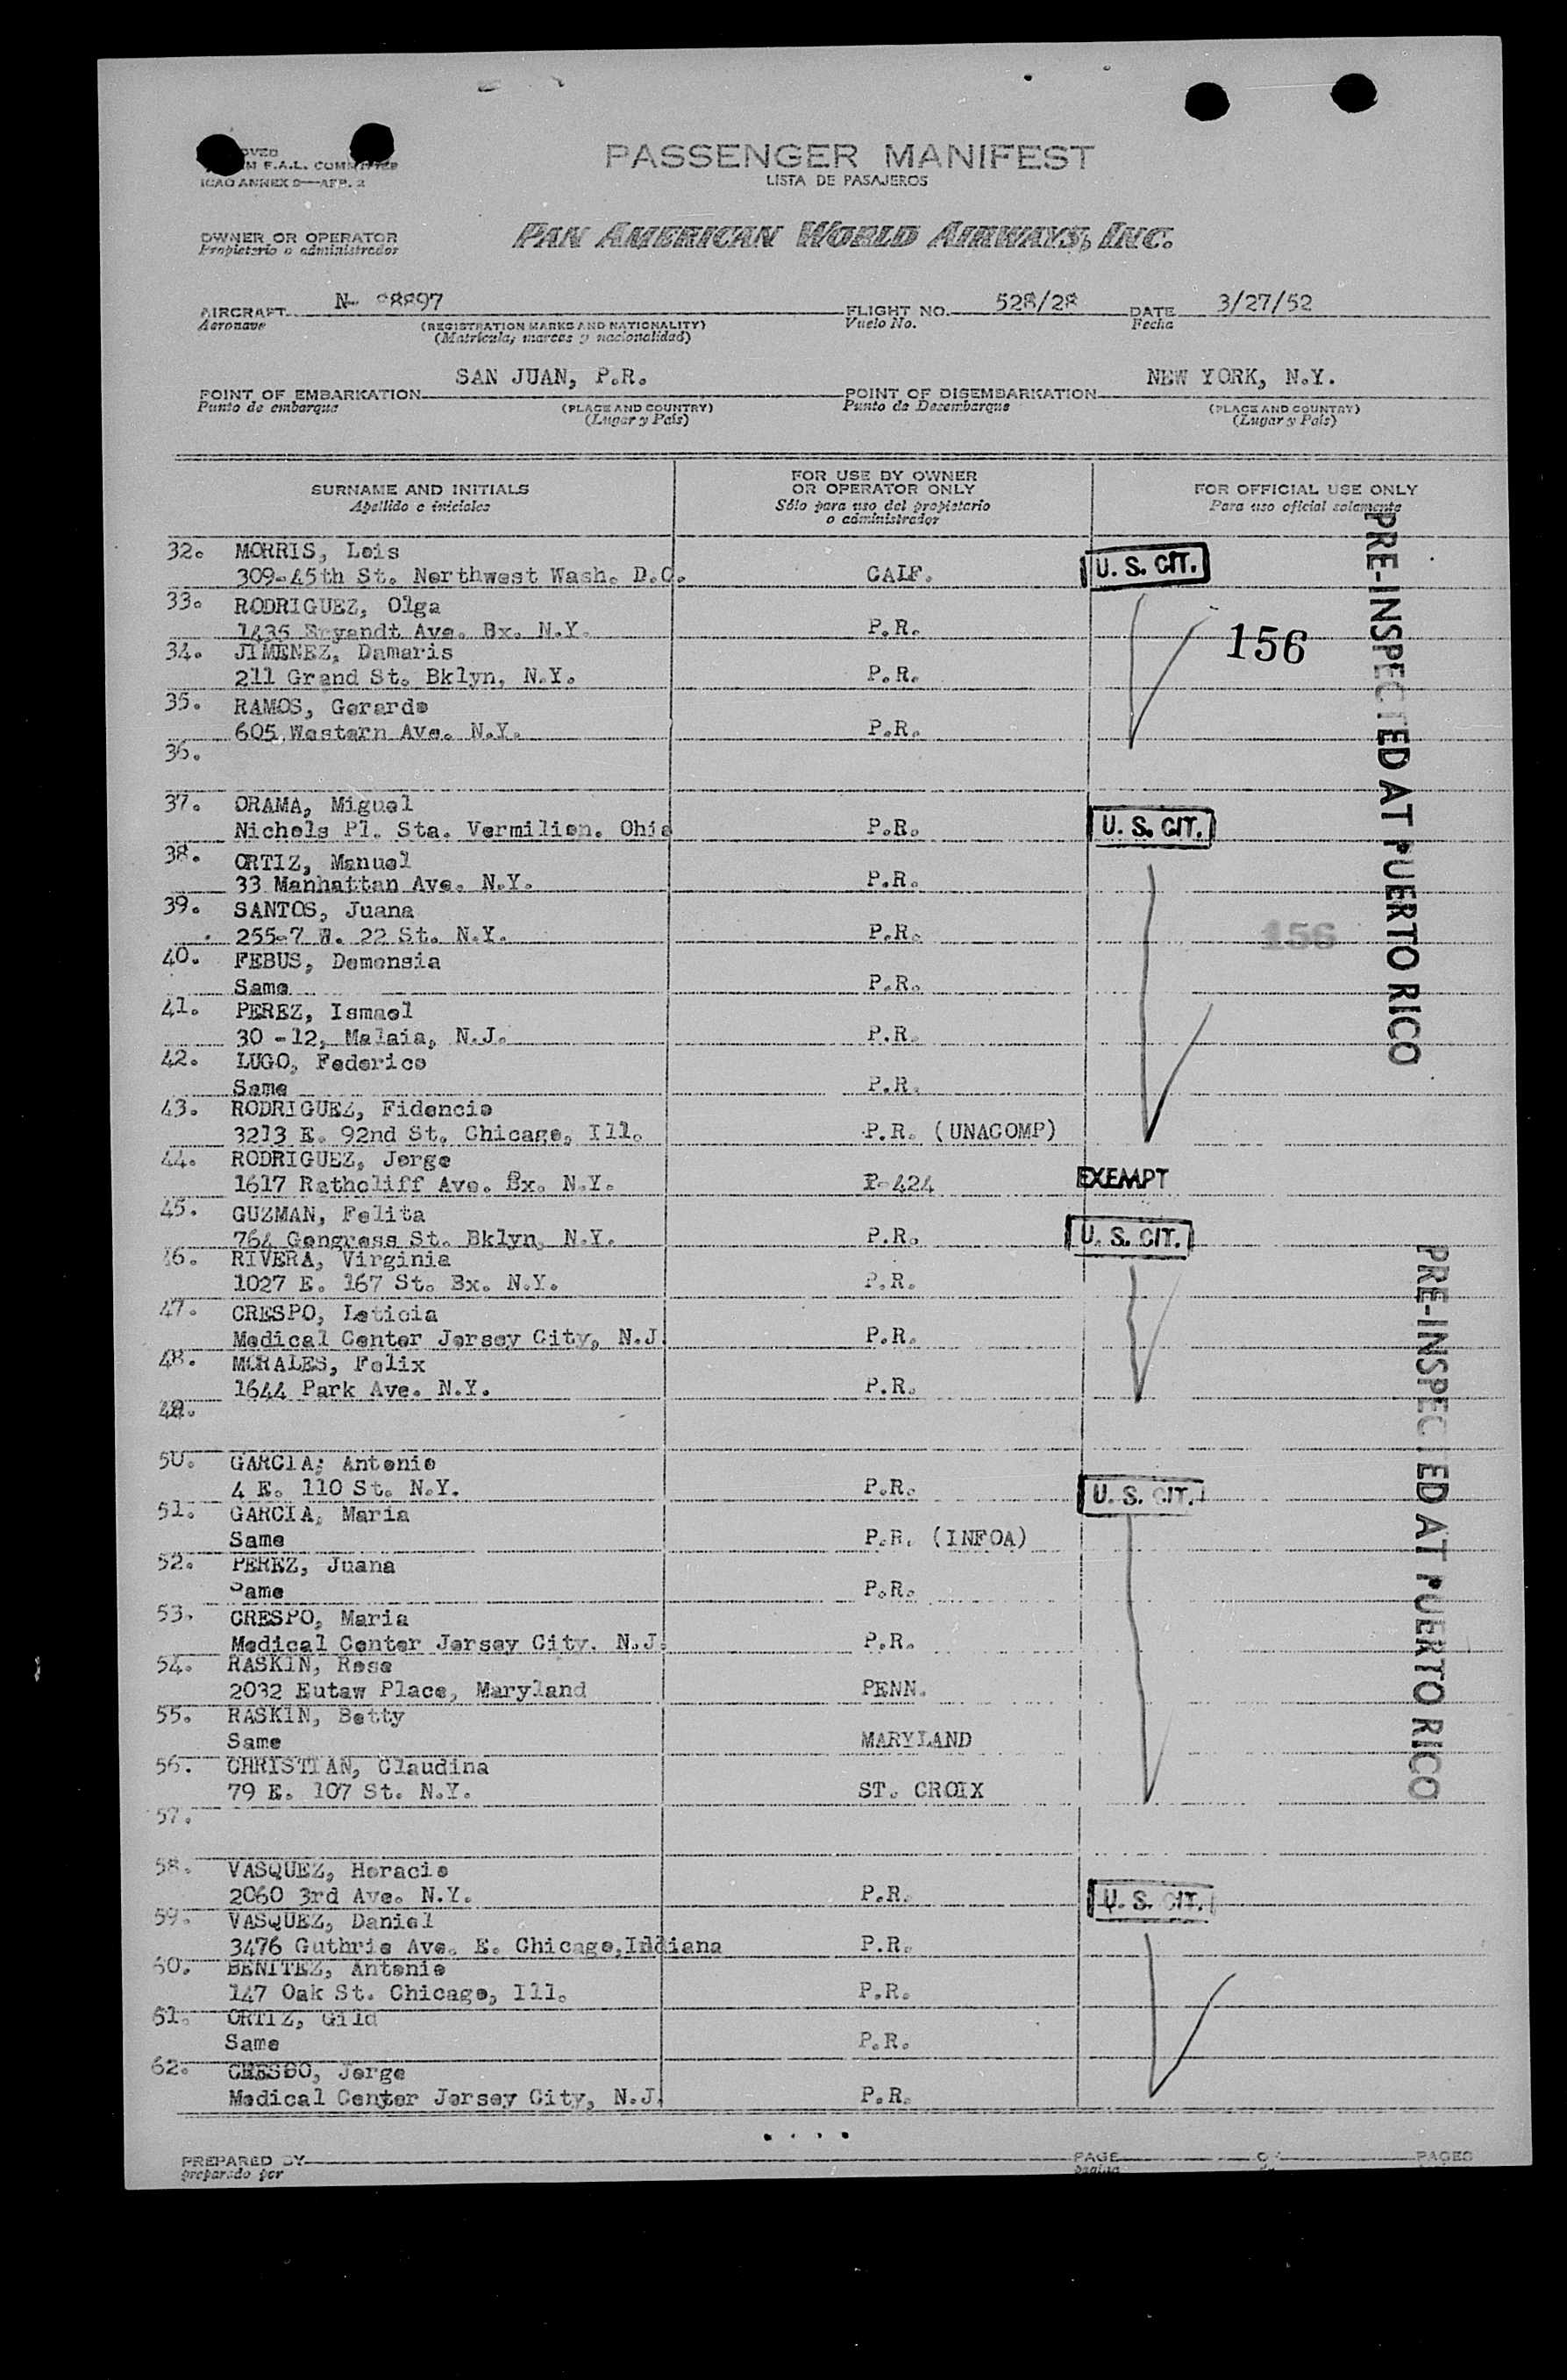 F.A.L. COMMITTEE
ICAO ANNEX 9—APP. 2
PASSENGER MANIFEST
LISTA DE PASAJEROS
OWNER OR OPERATOR
Propietario o administrador
PAN AMERICAN WORLD AIRWAYS, INC.
AIRCRAFT N- 88897 FLIGHT NO. 528/28 DATE 3/27/52
Aeronave (REGISTRATION MARKS AND NATIONALITY) Vuelo No. Fecha
(Matrícula, marcas y nacionalidad)
POINT OF EMBARKATION SAN JUAN, P.R. POINT OF DISEMBARKATION NEW YORK, N.Y.
Punto de embarque (PLACE AND COUNTRY) Punto de Desembarque (PLACE AND COUNTRY)
(Lugar y País) (Lugar y País)
SURNAME AND INITIALS FOR USE BY OWNER OR OPERATOR ONLY FOR OFFICIAL USE ONLY
Apellido e iniciales Sólo para uso del propietario o administrador Para uso oficial solamente
32. MORRIS, Lois
309-45th St. Northwest Wash. D.C. CALF. U. S. CIT.
33. RODRIGUEZ, Olga
1435 Ave. Bx. N.Y. P.R. 156
34. JIMENEZ, Damaris
211 Grand St. Bklyn, N.Y. P.R.
35. RAMOS, Gerardo
605 Western Ave. N.Y. P.R.
36.
37. ORAMA, Miguel
Nichols Pl. Sta. Vermilion. Ohio P.R. U. S. CIT.
38. ORTIZ, Manuel
33 Manhattan Ave. N.Y. P.R.
39. SANTOS, Juana
255-7 W. 22 St. N.Y. P.R. 156
40. FEBUS, Demensia
Same P.R.
41. PEREZ, Ismael
30 -12, Malaia, N.J. P.R.
42. LUGO, Federico
Same P.R.
43. RODRIGUEZ, Fidencio
3213 E. 92nd St. Chicago, Ill. P.R. (UNACOMP)
44. RODRIGUEZ, Jorge
1617 Rathcliff Ave. Bx. N.Y. I-424 EXEMPT
45. GUZMAN, Felita
764 Gongress St. Bklyn, N.Y. P.R. U. S. CIT.
46. RIVERA, Virginia
1027 E. 167 St. Bx. N.Y. P.R.
47. CRESPO, Leticia
Medical Center Jersey City, N.J. P.R.
48. MORALES, Felix
1644 Park Ave. N.Y. P.R.
49.
50. GARCIA; Antonio
4 E. 110 St. N.Y. P.R. U. S. CIT.
51. GARCIA, Maria
Same P.R. (INFOA)
52. PEREZ, Juana
Same P.R.
53. CRESPO, Maria
Medical Center Jersey City. N.J. P.R.
54. RASKIN, Rose
2032 Eutaw Place, Maryland PENN.
55. RASKIN, Betty
Same MARYLAND
56. CHRISTIAN, Claudina
79 E. 107 St. N.Y. ST. CROIX
57.
58. VASQUEZ, Horacio
2060 3rd Ave. N.Y. P.R. U. S. CIT.
59. VASQUEZ, Daniel
3476 Guthrie Ave. E. Chicago, Indiana P.R.
60. BENITEZ, Antonio
147 Oak St. Chicago, Ill. P.R.
61. ORTIZ, Gild
Same P.R.
62. Jorge
Medical Center Jersey City, N.J. P.R.
PRE-INSPECTED AT PUERTO RICO
PRE-INSPECTED AT PUERTO RICO
PREPARED BY PAGE PAGES
preparado por